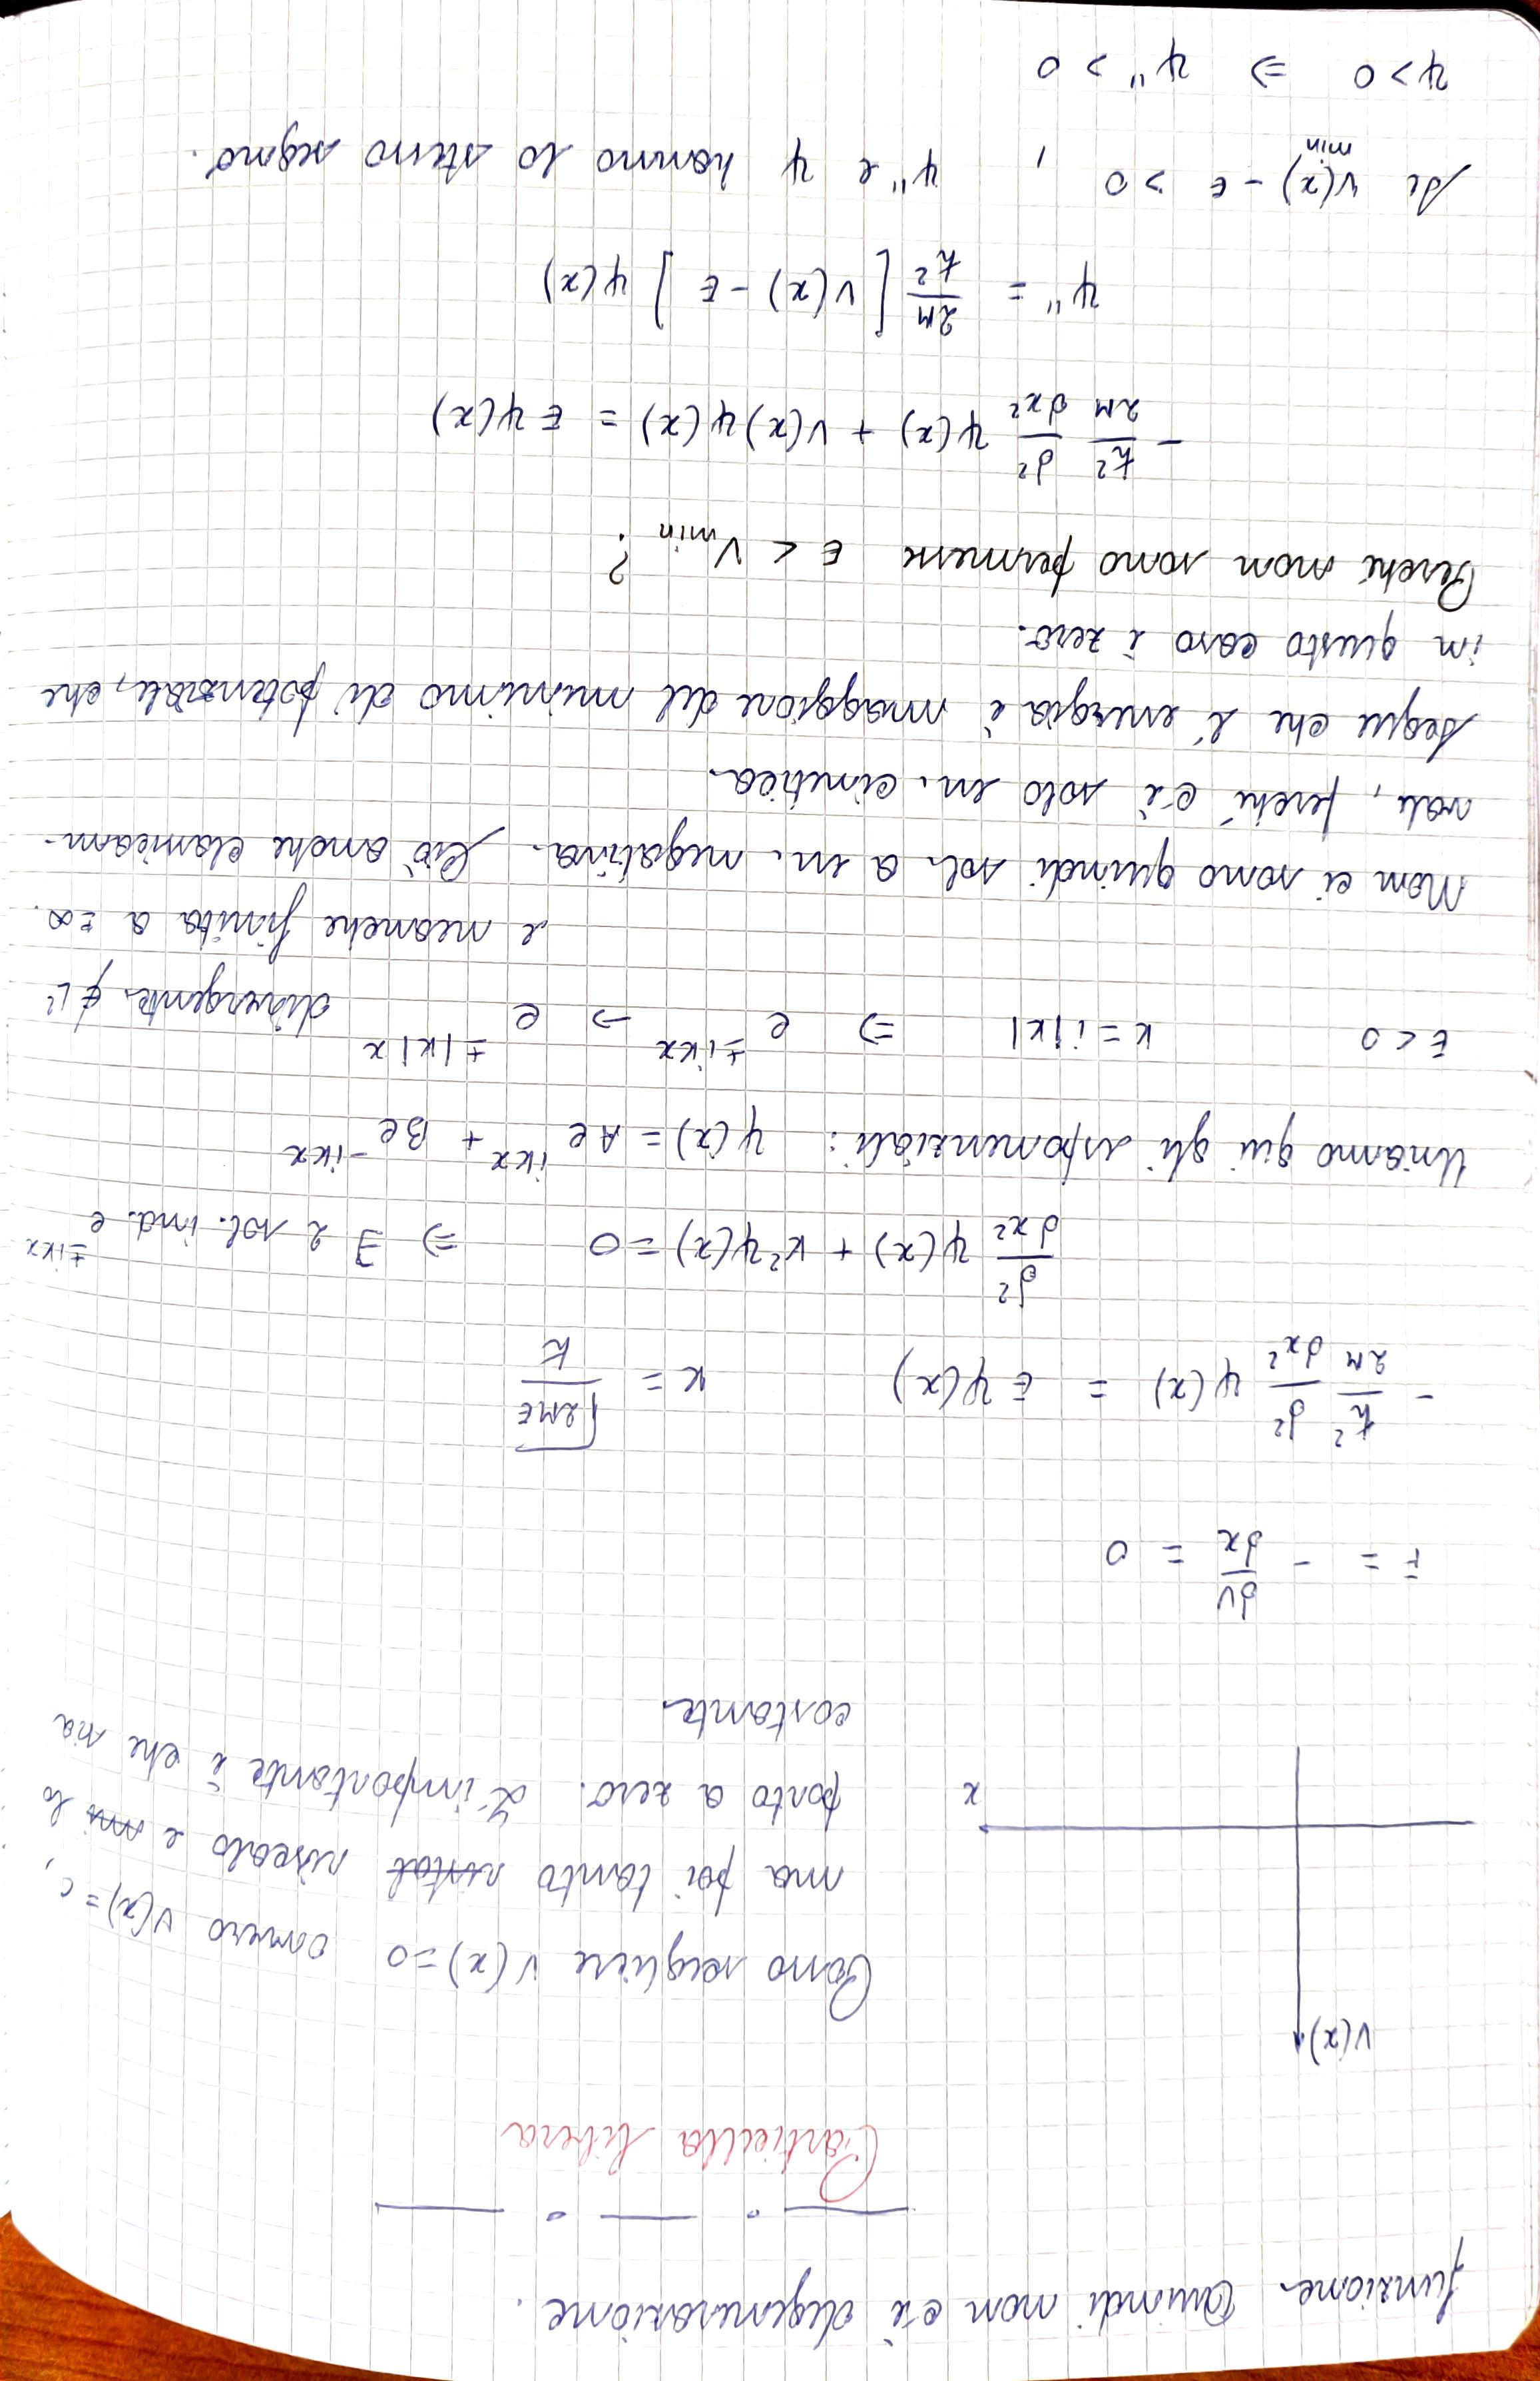 funzione. Quindi non c'è degenerazione.
Particella libera
V(x)
x
Posso scegliere V(x)=0 ovvero V(x)=c,
ma poi tanto riscalo e lo
porto a zero. L'importante è che sia
costante.
F = - dV/dx = 0
- ħ²/2M d²/dx² ψ(x) = E ψ(x)    K = √2ME/ħ
d²/dx² ψ(x) + K²ψ(x) = 0 ⇒ ∃ 2 sol. ind. e^±iKx
Usiamo qui gli esponenziali: ψ(x) = Ae^iKx + Be^-iKx
E<0    K = i|K| ⇒ e^±iKx → e^±|K|x divergente. ∉ L²
e neanche finita a ±∞.
Non ci sono quindi sol. a en. negativa. Ciò anche classicam-
, perché c'è solo en. cinetica.
Segue che l'energia è maggiore del minimo di potenziale, che
in questo caso è zero.
Perché non sono permesse E < Vmin ?
- ħ²/2M d²/dx² ψ(x) + V(x)ψ(x) = E ψ(x)
ψ'' = 2M/ħ² [V(x) - E] ψ(x)
Se V(x)min - E > 0 , ψ'' e ψ hanno lo stesso segno.
ψ>0 ⇒ ψ'' > 0